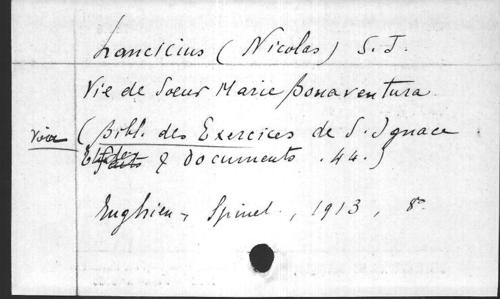 Lancicius (Nicolas) S. J.
Vie de Soeur Marie Bonaventura
voir (Bibl. des Exercices de S. Ignace
Etudes & Documents . 44.)
Enghien, Spinel., 1913, 8°